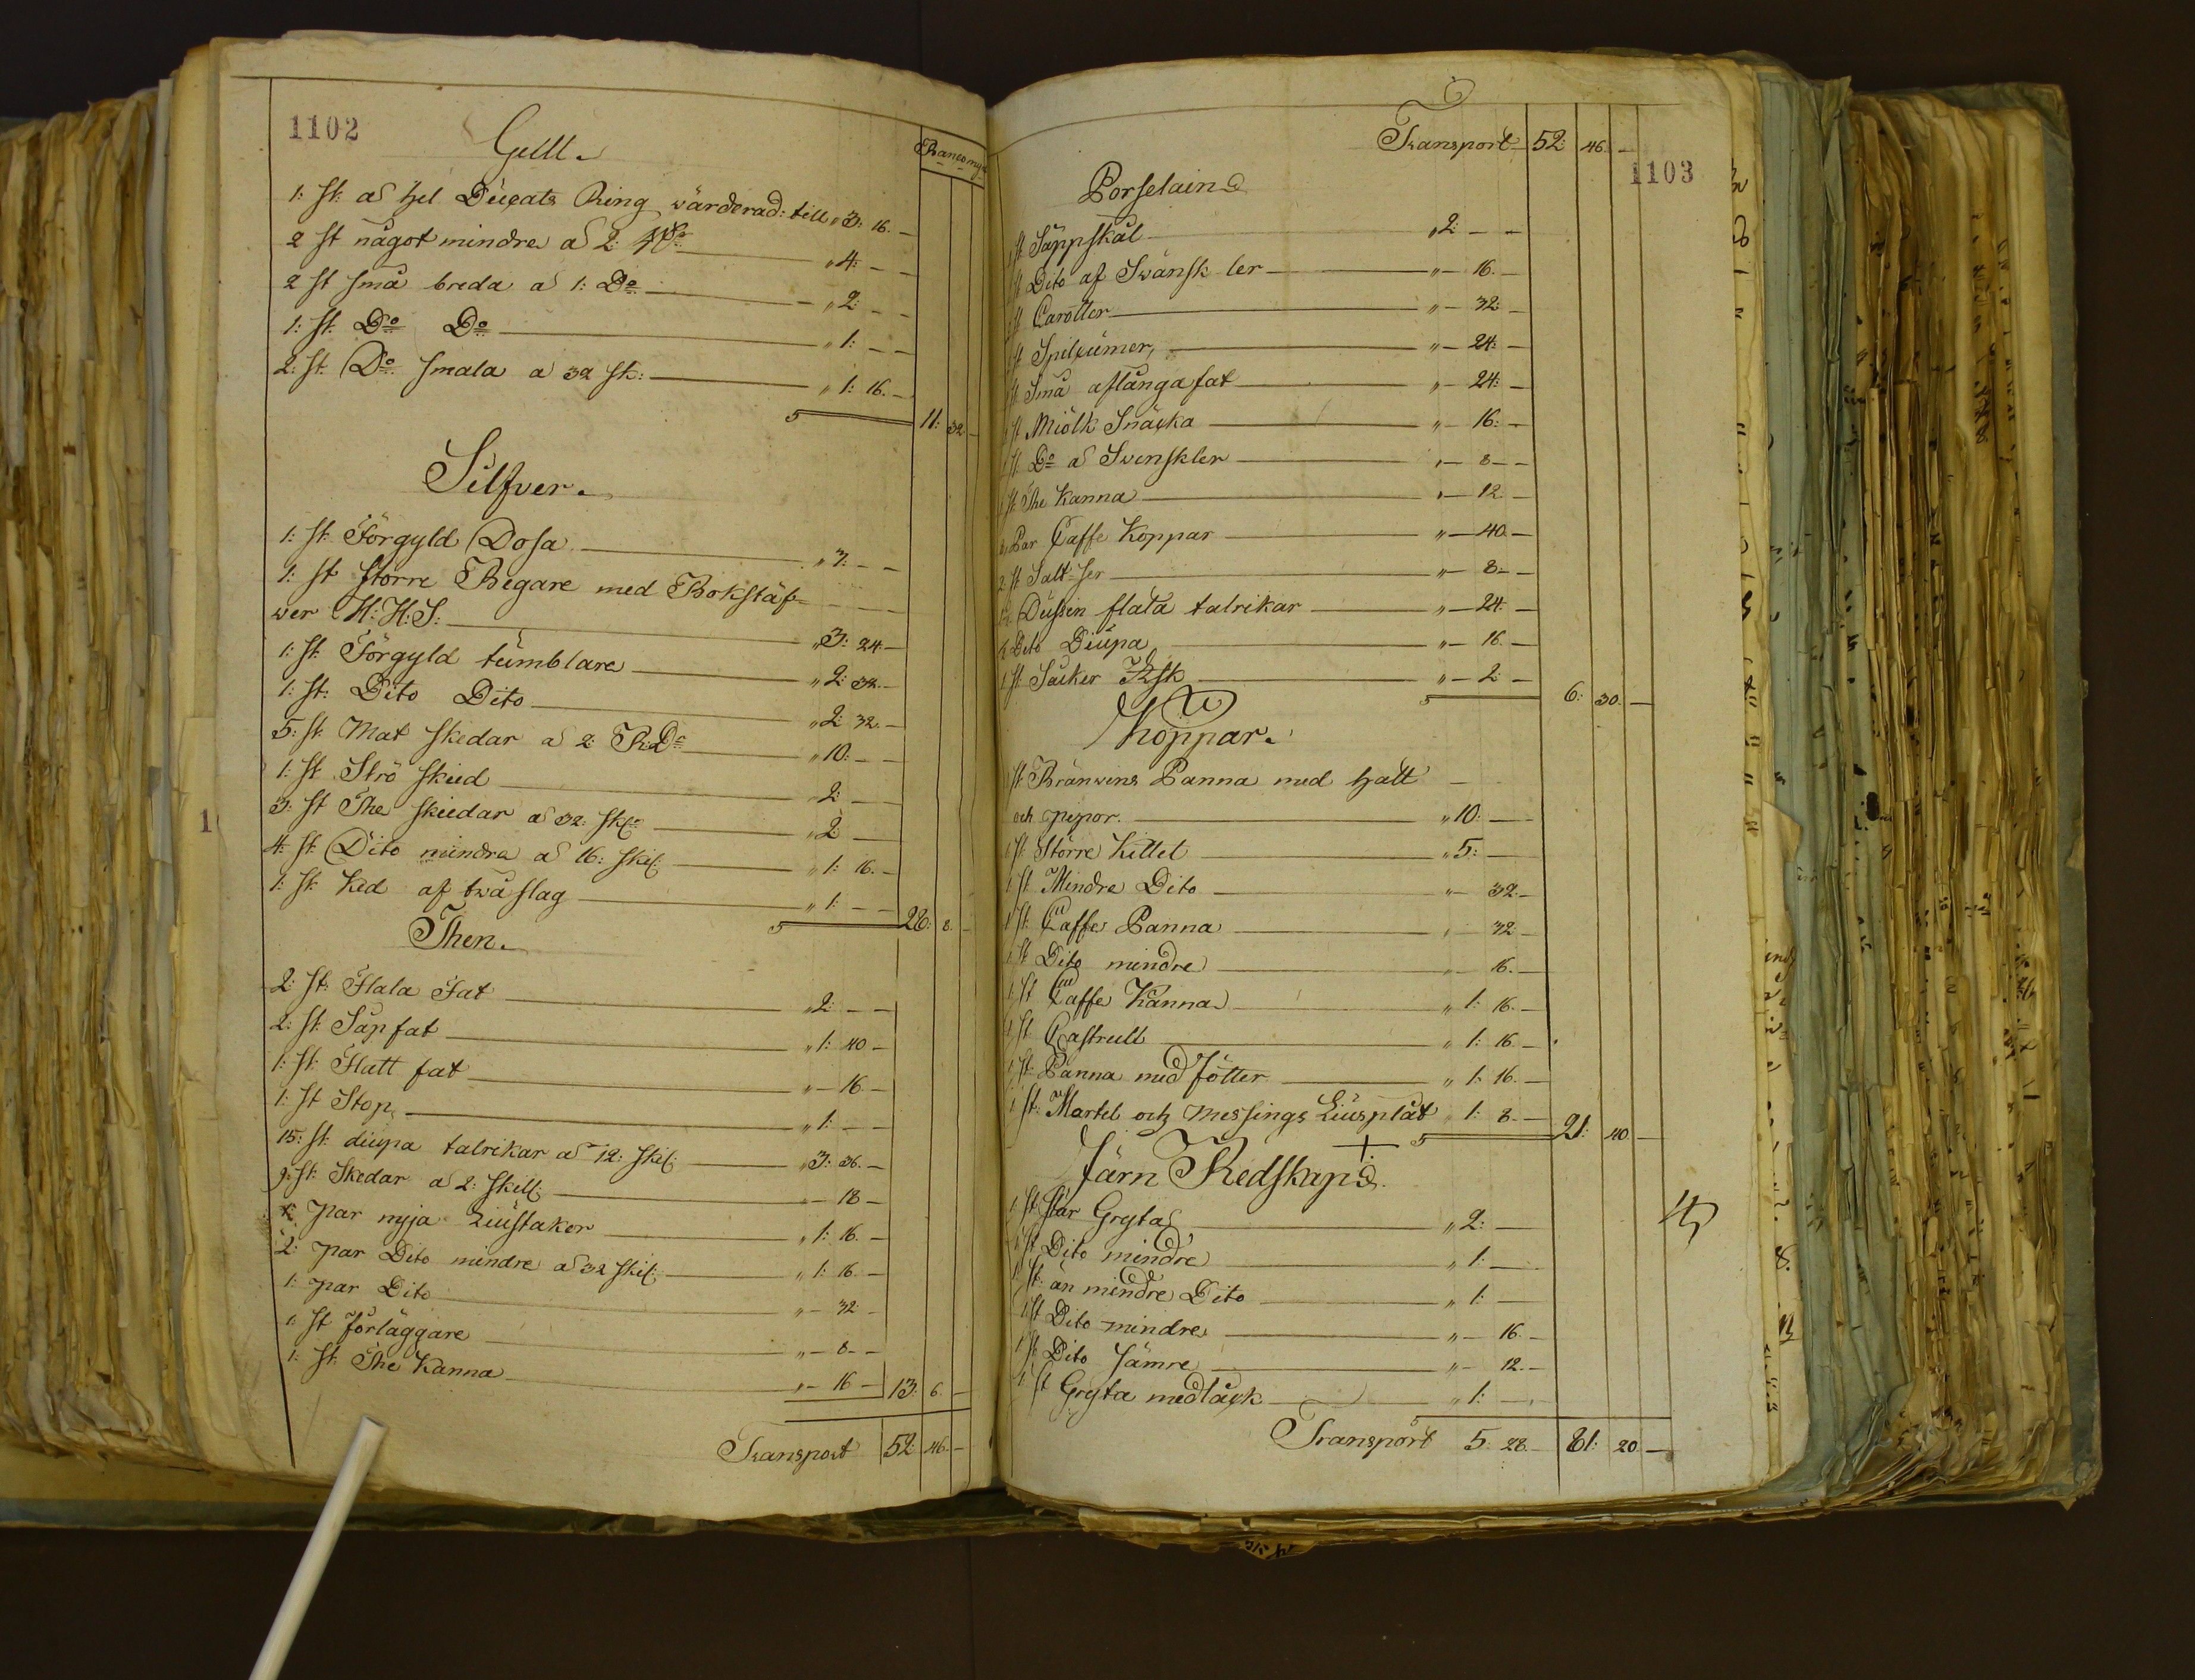 1102
Gull.
Banco mynt
1: st: a Hel Ducats Ring wärderad: till " 3: 16. -
2 st något mindre a 2: RD: " 4: - -
2 st små breda a 1: Do " 2: - -
1: st: Do Do " 1: - -
2: st: Do smala a 32 sk: " 1: 16. -
S 11: 32 -
Silfver.
1: st: Förgyld Dosa " 3: - -
1: st större Begare med Bokstäf-
wer H: H: S: " 3: 24 -
1: st: Förgyld tümblare " 2: 32. -
1: st: Dito Dito " 2: 32. -
5: st: Mat skedar a 2: R:Do " 10: - -
1: st: Strö skied " 2: - -
3: st The skiedar a 32: sk: " 2 - -
4: st: Dito mindre a 16: skil: " 1: 16. -
1: st: Ked af twå slag " 1: - -
S 28: 8. -
Then.
2: st: Flata Fat " 2: - -
2: st: Såp fat " 1: 40 -
1: st: Flatt fat " - 16 -
1: st Stop " 1: - -
15: st: diupa talrikar a 12: skil: " 3: 36. -
9: st: Skedar a 2: skell: " - 18 -
par nyja Liustakor " 1: 16. -
2: par Dito mindre a 32 skil: " 1: 16. -
1: par Dito " - 32 -
1: st förläggare " - 8 - -
1: st: The Kanna " - 16 - 13: 6. -
Transport 52 46. -
1103
Transport 52: 46. -
Porselaine
st Såppskål " 2: - -
st Dito af Swänsk ler " - 16. -
st Carotter " - 32: -
st Spilcümer, " - 24: -
st Små aflånga fat " - 24: -
st Miölk Snäcka " - 16: -
st Do a Svenskler " - 8 - -
st The Kanna " - 12 -
Par Caffe Koppar " - 40. -
2: st Salt: ser " - 8 - -
Dussin flata talrikar " - 24. -
Dito Diupa " - 16 -
1 st Såcker Ask " - 2: -
S 6: 30. -
Koppar.
st Bränwins Panna med Hatt
och pipor. " 10: -
st Större Kittel " 5: -
1 st Mindre Dito " - 32 -
1 st: Caffe Panna " 32 -
1 st Dito mindre " - 16. -
1 st Caffe Kanna " 1: 16. -
1 st Castrull " 1: 16. -
1 st: Panna med fötter " 1: 16. -
1 st: Martel och Messings Liusplåt " 1: 8 -
S 21: 40. -
Järn Redskap.
1 st: stör Gryta " 2: -
1 st Dito mindre " 1: -
1 st: än mindre Dito " 1: -
1 st Dito mindre " - 16. -
1 st: Dito sämre " - 12. -
1: st Gryta med låck " 1: -
Transport 5: 28. - 81: 20. -